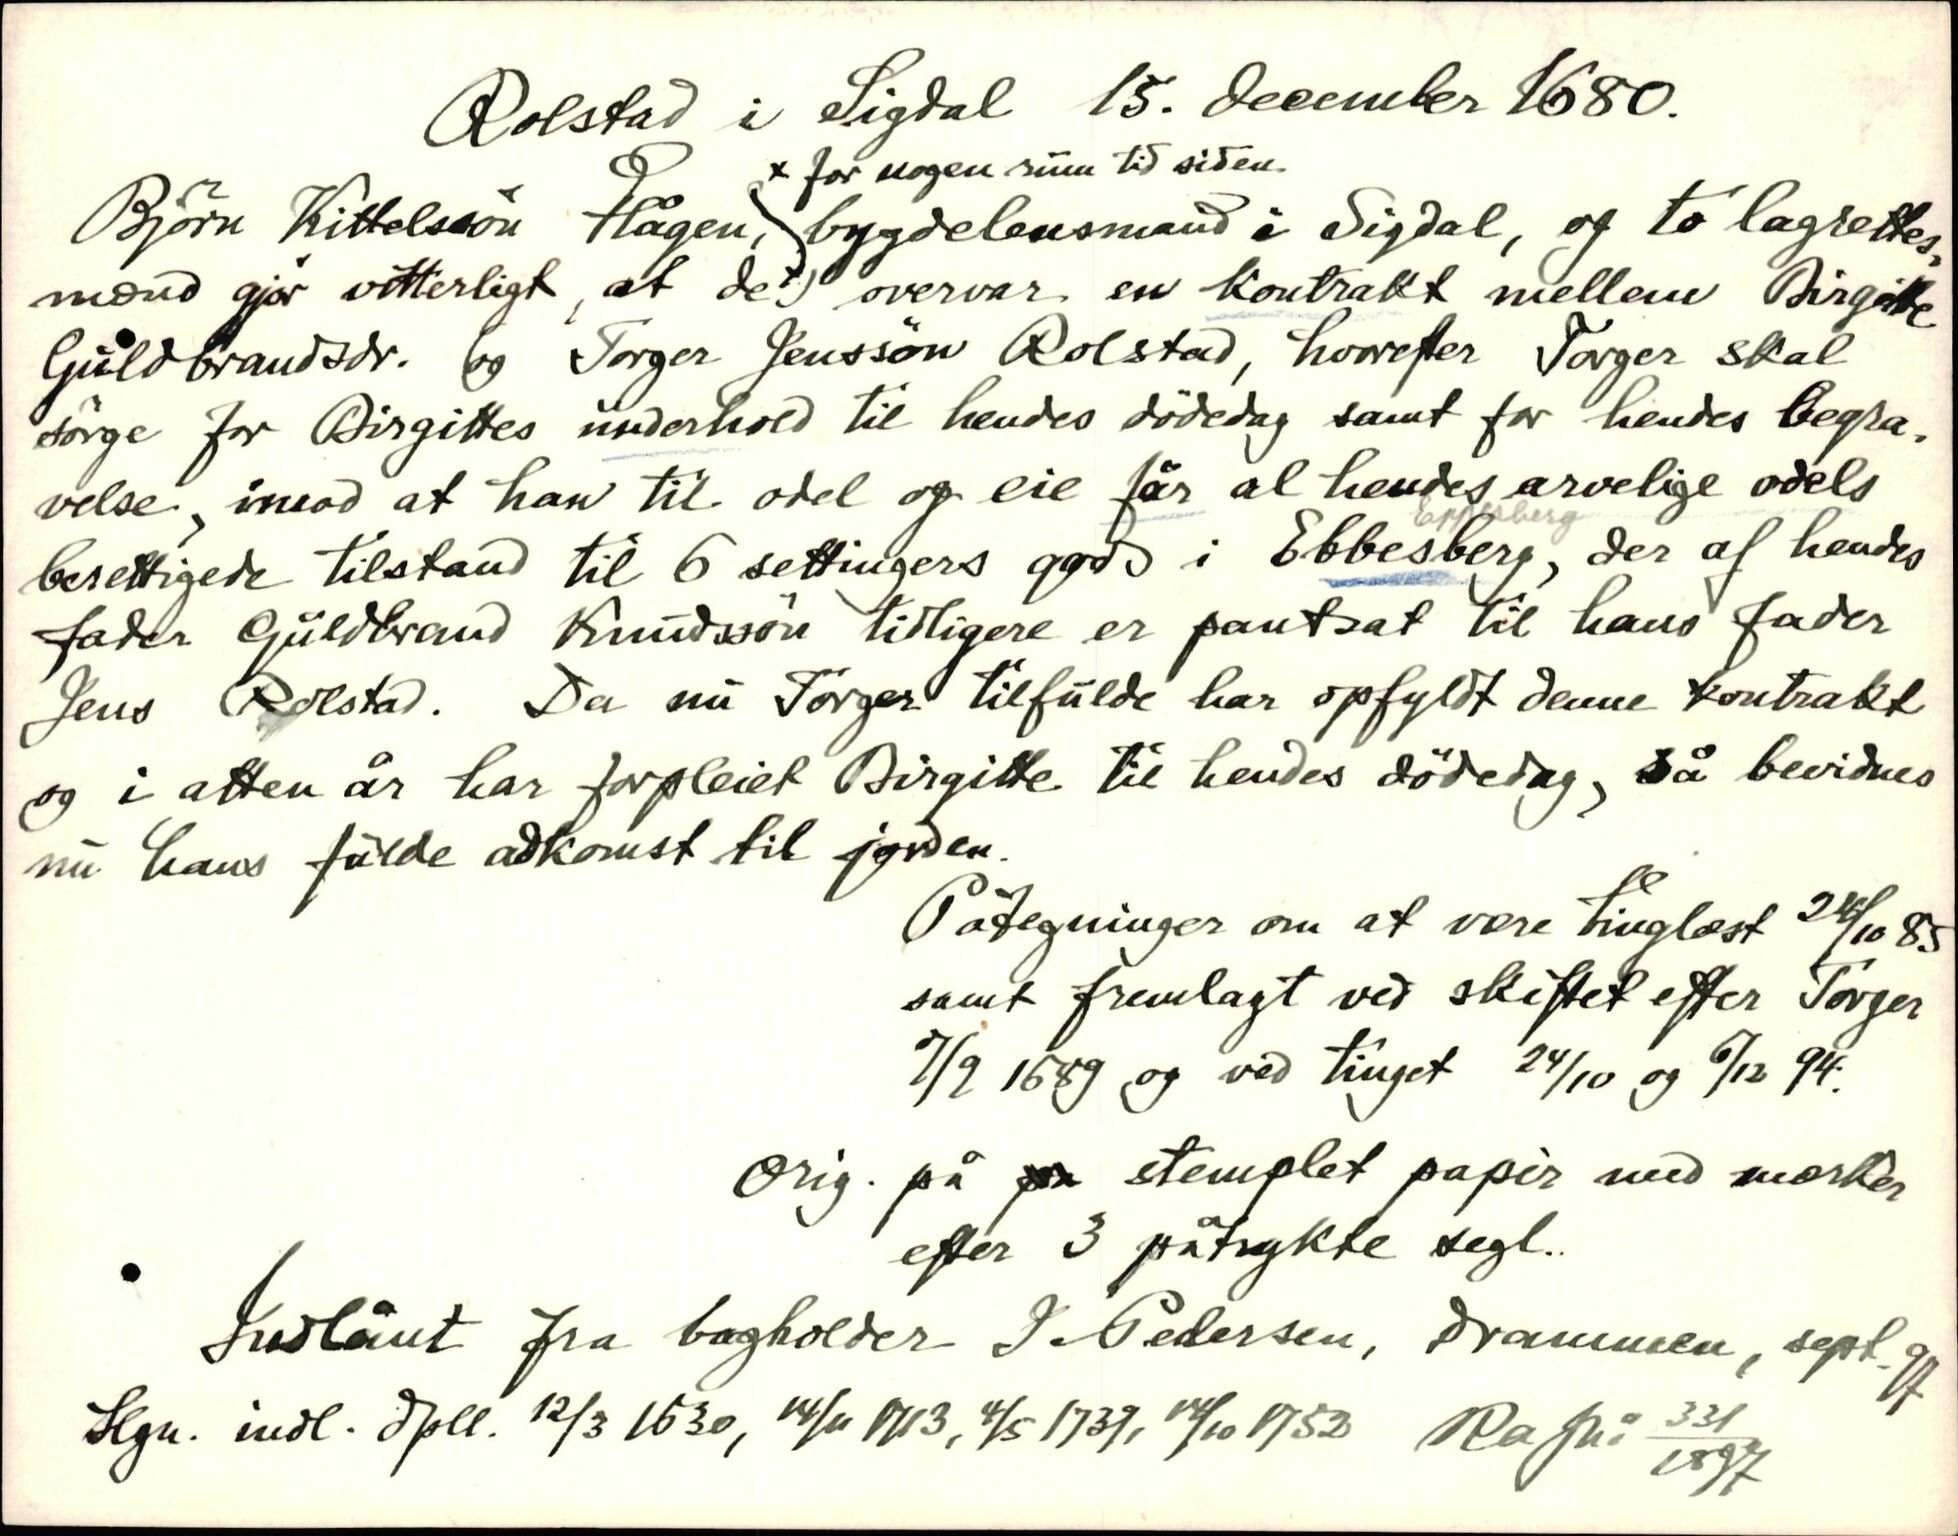 Rolstad i Sigdal 15. december 1680.
x for nogen rum tid siden
Björn Kittelssön Hågen, bygdelensmand i Sigdal, og to lagrettes-
mænd gjør vitterligt, at de x) overvar en kontrakt mellem Birgitte
Guldbrandsdr. og Torger Jenssön Rolstad, hvorefter Torger skal
sörge for Birgittes underhold til hendes dödedag samt for hendes begra-
velse, imod at han til odel og eie får al hendes arvelige odels
Eppesberg
berettigede tilstand til 6 settingers gods i Ebbesberg, der af hendes
fader Guldbrand Knudssön tidligere er pantsat til hans fader
Jens Rolstad. Da nu Torger tilfulde har opfyldt denne kontrakt
og i atten år har forpleiet Birgitte til hendes dödedag, så bevidnes
nu hans fulde adkomst til jorden.
Påtegninger om at være tinglæst 24/10 85
samt fremlagt ved skiftet efter Torger
7/9 1689 og ved tinget 24/10 og 6/12 94.
Orig. på stemplet papir med mærker
efter 3 påtrykte segl.
Indlånt fra bogholder J. Pedersen, Drammen, sept. 97
Slgn. indl. dpll. 12/3 1630, 14/11 1713, 4/5 1739, 14/10 1752 Ra jn: 331/1897